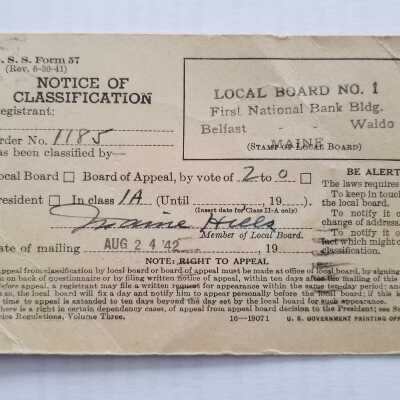 . S. S. Form 57
(Rev. 6-30-41)
NOTICE OF
CLASSIFICATION
registrant:
Order No. 1185
has been classified by—
Local Board □ Board of Appeal, by vote of 2 to 0 □
resident □ In class 1A (Until ........., 19.....)
(Insert date for Class II-A only)
Hills
Member of Local Board.
Date of mailing AUG 24 '42, 19
LOCAL BOARD NO. 1
First National Bank Bldg.
Belfast - Waldo
MAINE
(STAMP OF LOCAL BOARD)
BE ALERT
The laws requires
To keep in touch
the local board.
To notify it o
change of address.
To notify it of
fact which might c
classification.
NOTE: RIGHT TO APPEAL
Appeal from classification by local board or board of appeal must be made at office of local board, by signing
on back of questionnaire or by filing written notice of appeal, within ten days after the mailing of this
before appeal, a registrant may file a written request for appearance within the same ten-day period; and
so, the local board will fix a day and notify him to appear personally before the local board; if this
time to appeal is extended to ten days beyond the day set by the local board for such appearance.
There is a right in certain dependency cases, of appeal from appeal board decision to the President; see Se
vice Regulations, Volume Three.
16—19071 U. S. GOVERNMENT PRINTING OFF